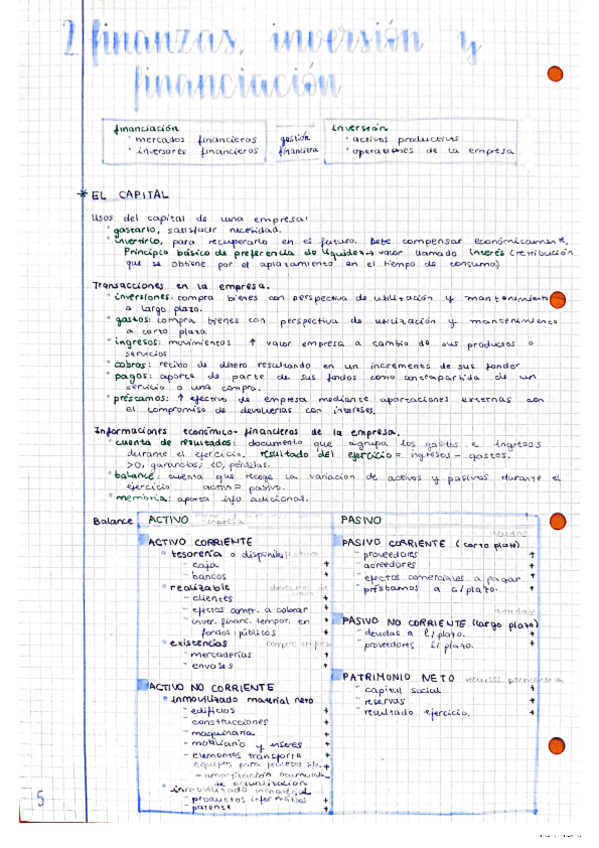 2. finanzas, inversión y
financiación
financiación
· mercados financieros
· inversores financieros
gestión
financiera
inversión
· activos productivos
· operaciones de la empresa
* EL CAPITAL
Usos del capital de una empresa:
· gastarlo, satisfacer necesidad.
· invertirlo, para recuperarlo en el futuro. Debe compensar económicamente.
Principio básico de preferencia de liquidez → valor llamado interés (retribución
que se obtiene por el aplazamiento en el tiempo de consumo)
Transacciones en la empresa.
· inversiones: compra bienes con perspectiva de utilización y mantenimiento
a largo plazo.
· gastos: compra bienes con perspectiva de utilización y mantenimiento
a corto plazo
· ingresos: movimientos ↑ valor empresa a cambio de sus productos o
servicios
· cobros: recibo de dinero resultando en un incremento de sus fondos
· pagos: aporte de parte de sus fondos como contrapartida de un
servicio o una compra.
· préstamos: ↑ efectivo de empresa mediante aportaciones externas con
el compromiso de devolverlas con intereses.
Informaciones económico-financieras de la empresa.
· cuenta de resultados: documento que agrupa los gastos e ingresos
durante el ejercicio. resultado del ejercicio = ingresos - gastos.
>0, ganancias; <0, pérdidas.
· balance: cuenta que recoge la variación de activos y pasivos durante el
ejercicio activo = pasivo.
· memoria: aporta info adicional.
Balance
ACTIVO
ACTIVO CORRIENTE
· tesorería o disponible
- caja +
- bancos +
· realizable
- clientes +
- efectos comer. a cobrar +
- inver. financ. tempor. en
fondos públicos +
· existencias
- mercaderías +
- envases +
ACTIVO NO CORRIENTE
· inmovilizado material neto
- edificios +
- construcciones +
- maquinaria +
- mobiliario y enseres +
- elementos transporte +
- equipos para procesos +
- amortización acumulada
· inmovilizado inmaterial
- productos informáticos +
- patente +
PASIVO
PASIVO CORRIENTE (corto plazo)
- proveedores +
- acreedores +
- efectos comerciales a pagar +
- préstamos a c/plazo. +
PASIVO NO CORRIENTE (largo plazo)
- deudas a l/plazo. +
- proveedores l/plazo. +
PATRIMONIO NETO recursos permanentes
- capital social +
- reservas +
- resultado ejercicio. +
5